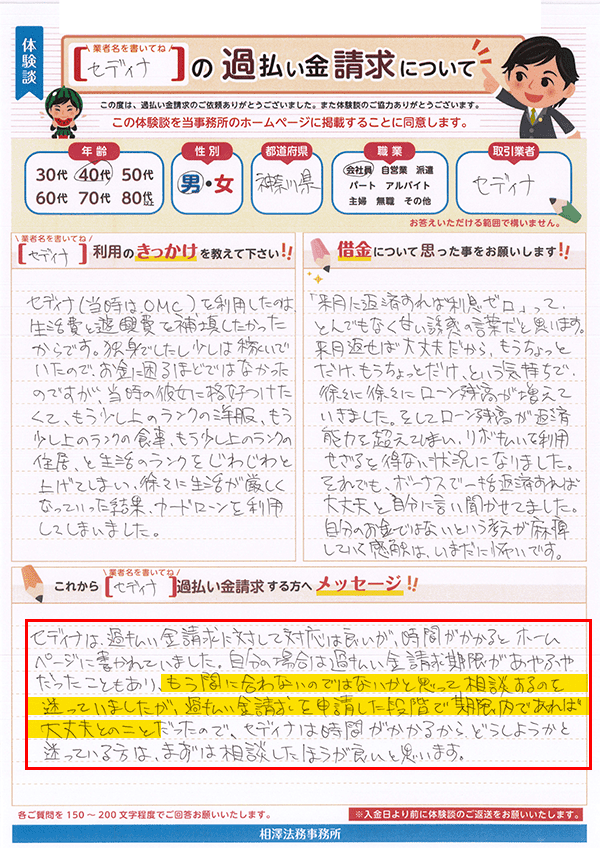 体験談
業者名を書いてね
[セディナ]の過払い金請求について
この度は、過払い金請求のご依頼ありがとうございました。また体験談のご協力ありがとうございます。
この体験談を当事務所のホームページに掲載することに同意します。
年齢
30代 40代 50代
60代 70代 80代
性別
男・女
都道府県
神奈川県
職業
会社員 自営業 派遣
パート アルバイト
主婦 無職 その他
取引業者
セディナ
お答えいただける範囲で構いません。
業者名を書いてね
[セディナ]利用のきっかけを教えて下さい!!
セディナ(当時はOMC)を利用したのは、
生活費と遊興費を補填したかった
からです。独身でしたし少しは稼いで
いたので、お金に困るほどではなかった
のですが、当時の彼女に格好つけた
くて、もう少し上のランクの洋服、もう
少し上のランクの食事、もう少し上のランクの
住居、と生活のランクをじわじわと
上げてしまい、徐々に生活が厳しく
なっていった結果、カードローンを利用
してしまいました。
借金について思った事をお願いします!!
「来月に返済すれば利息ゼロ」って、
とんでもなく甘い誘惑の言葉だと思います。
来月返せば大丈夫だから、もうちょっと
だけ、もうちょっとだけ、という気持ちで、
徐々に徐々にローン残高が増えて
いきました。そしてローン残高が返済
能力を超えてしまい、リボ払いを利用
せざるを得ない状況になりました。
それでも、ボーナスで一括返済すれば
大丈夫と自分に言い聞かせてました。
自分のお金ではないという考えが麻痺
していく感覚は、いまだに怖いです。
業者名を書いてね
これから[セディナ]過払い金請求する方へメッセージ!!
セディナは、過払い金請求に対して対応は良いが、時間がかかるとホーム
ページに書かれていました。自分の場合は過払い金請求期限があやふや
だったこともあり、もう間に合わないのではないかと思って相談するのを
迷っていましたが、過払い金請求を申請した段階で期限内であれば
大丈夫とのことだったので、セディナは時間がかかるから、どうしようかと
迷っている方は、まずは相談したほうが良いと思います。
各ご質問を150～200文字程度でご回答お願いいたします。
※入金日より前に体験談のご返送をお願いいたします。
相澤法務事務所